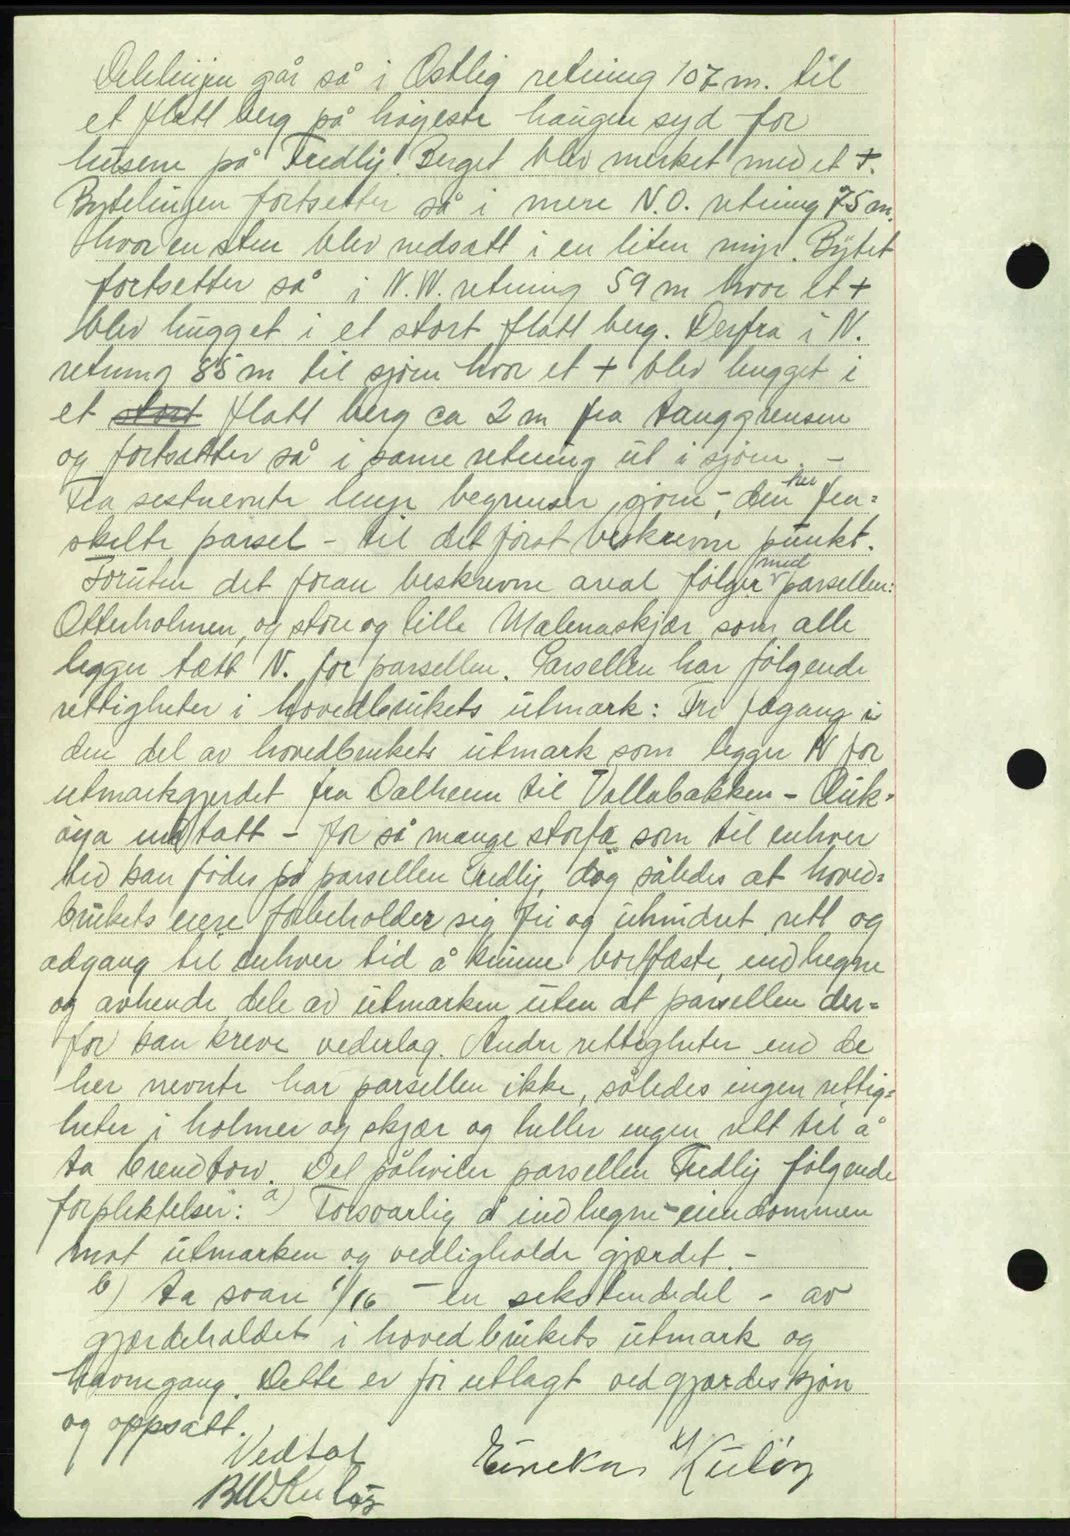 Delelinjen går så i Østlig retning 107 m. til
et flatt berg på høgeste haugen syd for
husene på Fredly. Berget blev merket med et +.
Bytelinjen fortsetter så i mere N.O. retning 75 m.
hvor en sten blev nedsatt i en liten myr. Bytet
fortsetter så i N.W. retning 59 m hvor et +
blev hugget i et stort flatt berg. Derfra i N.
retning 85 m til sjøen hvor et + blev hugget i
et stort flatt berg ca 2 m fra tanggrensen
og fortsetter så i same retning ut i sjøen. -
Fra sestnevnte linje begrenser sjøen - den her fra=
skilte parsel - til det først beskrevne punkt.
Foruten det foran beskrevne areal følger med parsellen:
Otterholmen, og store og lille Malenaskjær som alle
legger tett N. for parsellen. Parsellen har følgende
rettigheter i hovedbrukets utmark: Fri fægang i
den del av hovedbrukets utmark som legger N for
utmarkgjerdet fra Dalheim til Vollabakken -
øya undtatt - for så mange storfæ som til enhver
tid kan fødes på parsellen Fredly, dog således at hoved=
brukets eiere forbeholder sig fri og uhindret rett og
adgang til enhver tid å kunne bortfæste, indhegne
og avhende dele av utmarken uten at parsellen der=
for kan kreve vederlag. Andre rettigheter end de
her nevnte har parsellen ikke, således ingen rettig=
heter i holmer og skjær og heller ingen rett til å
ta brendtorv. Det påhviler parsellen Fredly følgende
forpliktelser: a) Forsvarlig å indhegne eiendommen
mot utmarken og vedligholde gjærdet. -
b) Ta svare 1/16 - en sekstendedel - av
gjærdeholdet i hovedbrukets utmark og
havnegang. Dette er før utlagt ved gjærdeskjøn
og oppsatt.
Vedtat
Kuløy